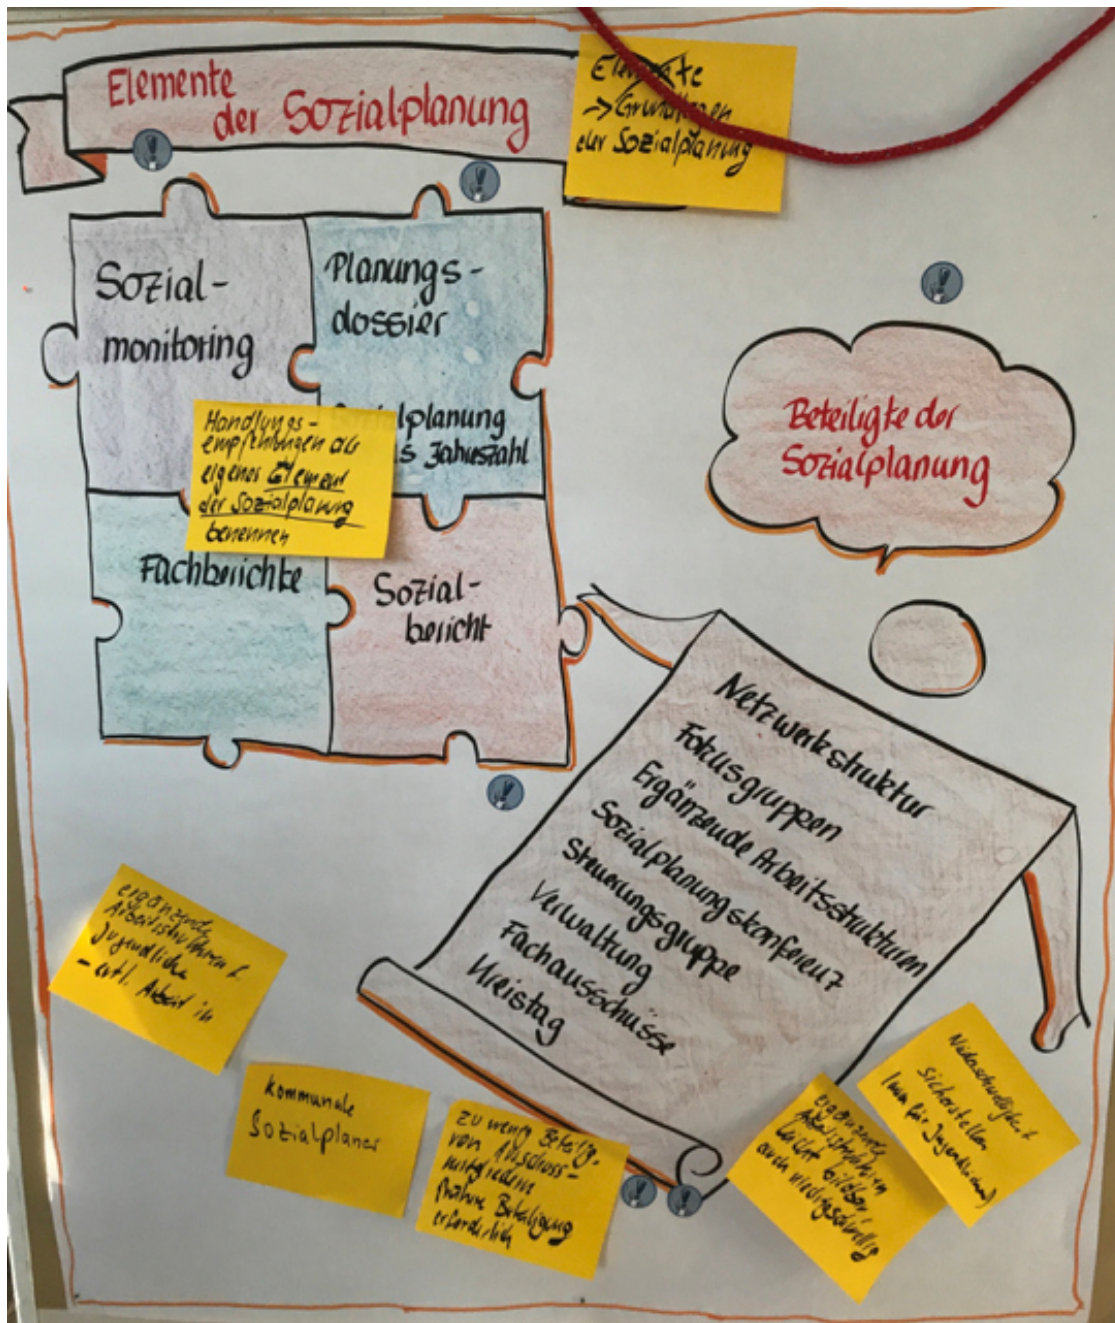 Elemente
der Sozialplanung
Elemente
→ Grundlagen
der Sozialplanung
Sozial-
monitoring
Planungs-
dossier
Sozialplanung
s Jahreszahl
Handlungs-
empfehlungen als
eigenes Element
der Sozialplanung
benennen
Fachberichte
Sozial-
bericht
Beteiligte der
Sozialplanung
Netzwerkstruktur
Fokusgruppen
Ergänzende Arbeitsstrukturen
Sozialplanungskonferenz
Steuerungsgruppe
Verwaltung
Fachausschüsse
Kreistag
ergänzende
Arbeitsstrukturen f.
Jugendliche
- evtl. Arbeit in
kommunale
Sozialplaner
zu wenig Beteilig.
von Ausschuss-
mitgliedern
frühere Beteiligung
erforderlich
ergänzende
Arbeitsstrukturen
leicht bildbar
auch niedrigschwellig
Niederschwelligkeit
sicherstellen
(nur für Jugendliche)